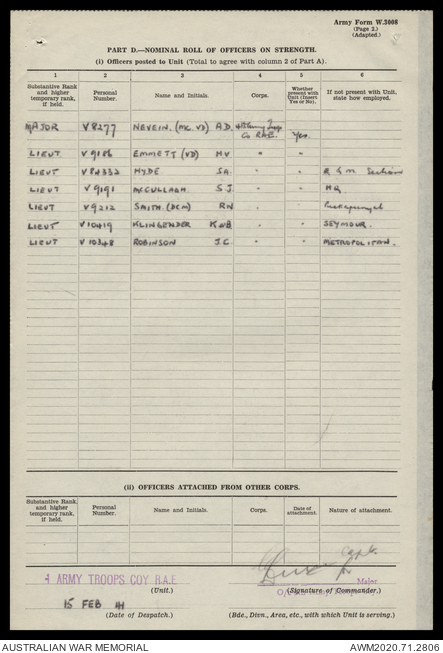 Army Form W.3008
(Page 2.)
(Adapted.)
PART D.—NOMINAL ROLL OF OFFICERS ON STRENGTH.
(i) Officers posted to Unit (Total to agree with column 2 of Part A).
1 2 3 4 5 6
Substantive Rank and higher temporary rank, if held. Personal Number. Name and Initials. Corps. Whether present with Unit (Insert Yes or No). If not present with Unit, state how employed.
MAJOR V8277 NEVEIN. (MC. VD) A.D. Co RAE. Yes.
LIEUT. V9186 EMMETT (VD) H V " "
LIEUT. V84332 HYDE S.A. " " Section
LIEUT V9191 McCULLAGH. S J. " " HQ
LIEUT V9212 SMITH. (DCM) RN " " Puckapunyal
LIEUT V10419 KLINGENDER K W B " " SEYMOUR.
LIEUT V10348 ROBINSON J.C. " " METROPOLITAN.
(ii) OFFICERS ATTACHED FROM OTHER CORPS.
Substantive Rank and higher temporary rank, if held. Personal Number. Name and Initials. Corps. Date of attachment. Nature of attachment.
4 ARMY TROOPS COY R.A.E. Capt.
Major
(Unit.) (Signature of Commander.)
15 FEB 41
(Date of Despatch.) (Bde., Divn., Area, etc., with which Unit is serving.)
AUSTRALIAN WAR MEMORIAL AWM2020.71.2806